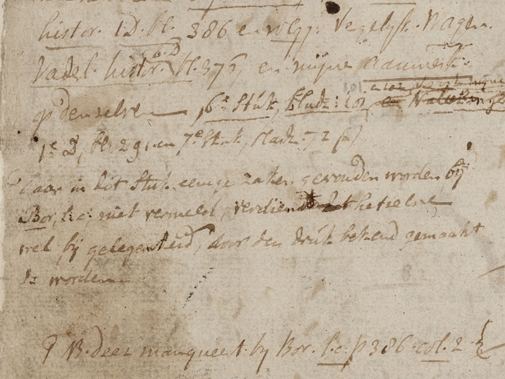 histor. 1D. bl. 386 en volgg. Vergelijk Wagen.
Vaderl. histor. VI D. bl. 375, en mijne Aanmerk.
op denselven 16e Stuk, bladz. 101.
1e D, bl. 291. en 7e Stuk, bladz. 72
Daar in dit Stuk eenige zaken gevonden worden bij
Bor, l. c. niet vermeld, verdient het hetzelve
wel bij gelegenheid, door den druk bekend gemaakt
te worden
B. deez manqueert by Bor. l. c. p 386 col. 2.